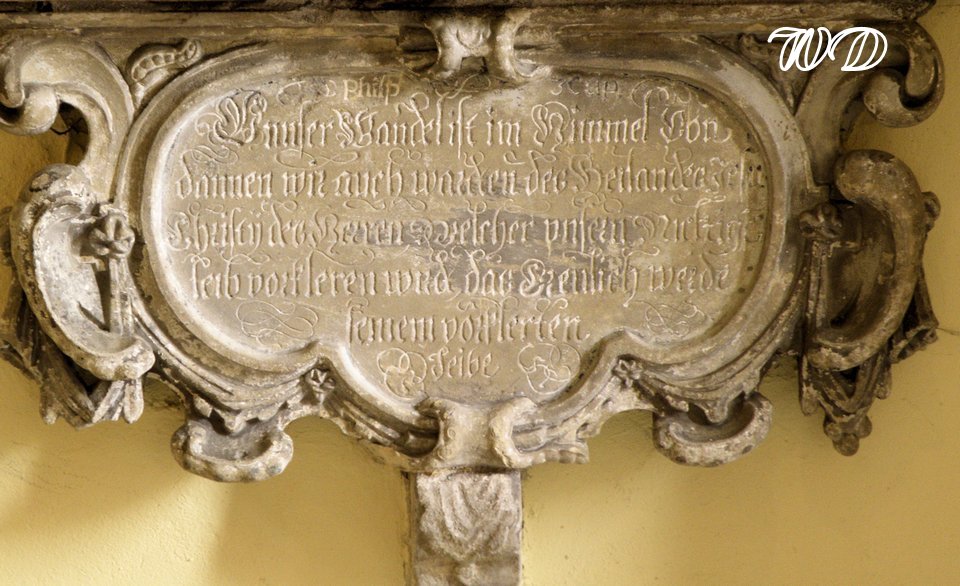 WD
Philip 3 Cap
Unuser Wandel ist im Himmel Von
dannen wir auch warden des Heilandes Jesu
Christy des Herren Welcher vnsern Nichtige
leib vorkleren wird das Er enlich werde
seinem vorklerten
Leibe